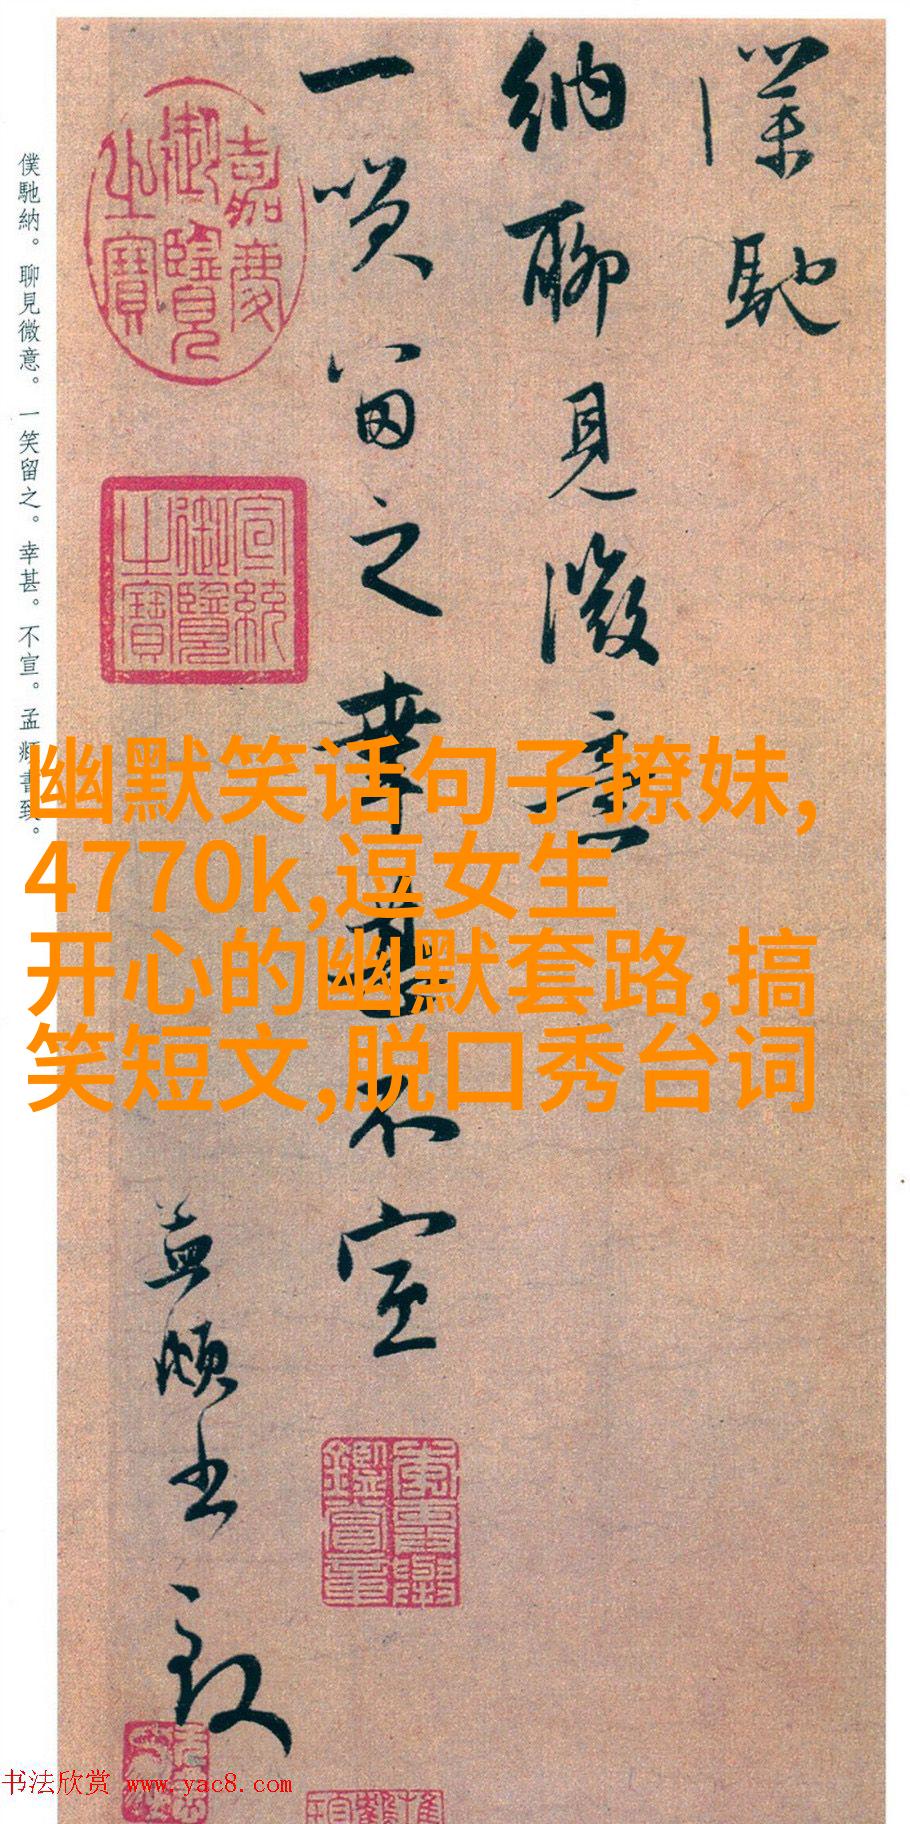 僕馳
納聊見微意
一笑留之幸甚不宣
孟頫書致
僕馳納。聊見微意。一笑留之。幸甚。不宣。孟頫書致。
嘉慶
御覽
之寶
宣統
御覽
之寶
幽默笑话句子撩妹,
4770k,逗女生
开心的幽默套路,搞
笑短文,脱口秀台词
书法欣赏 www.yac8.com